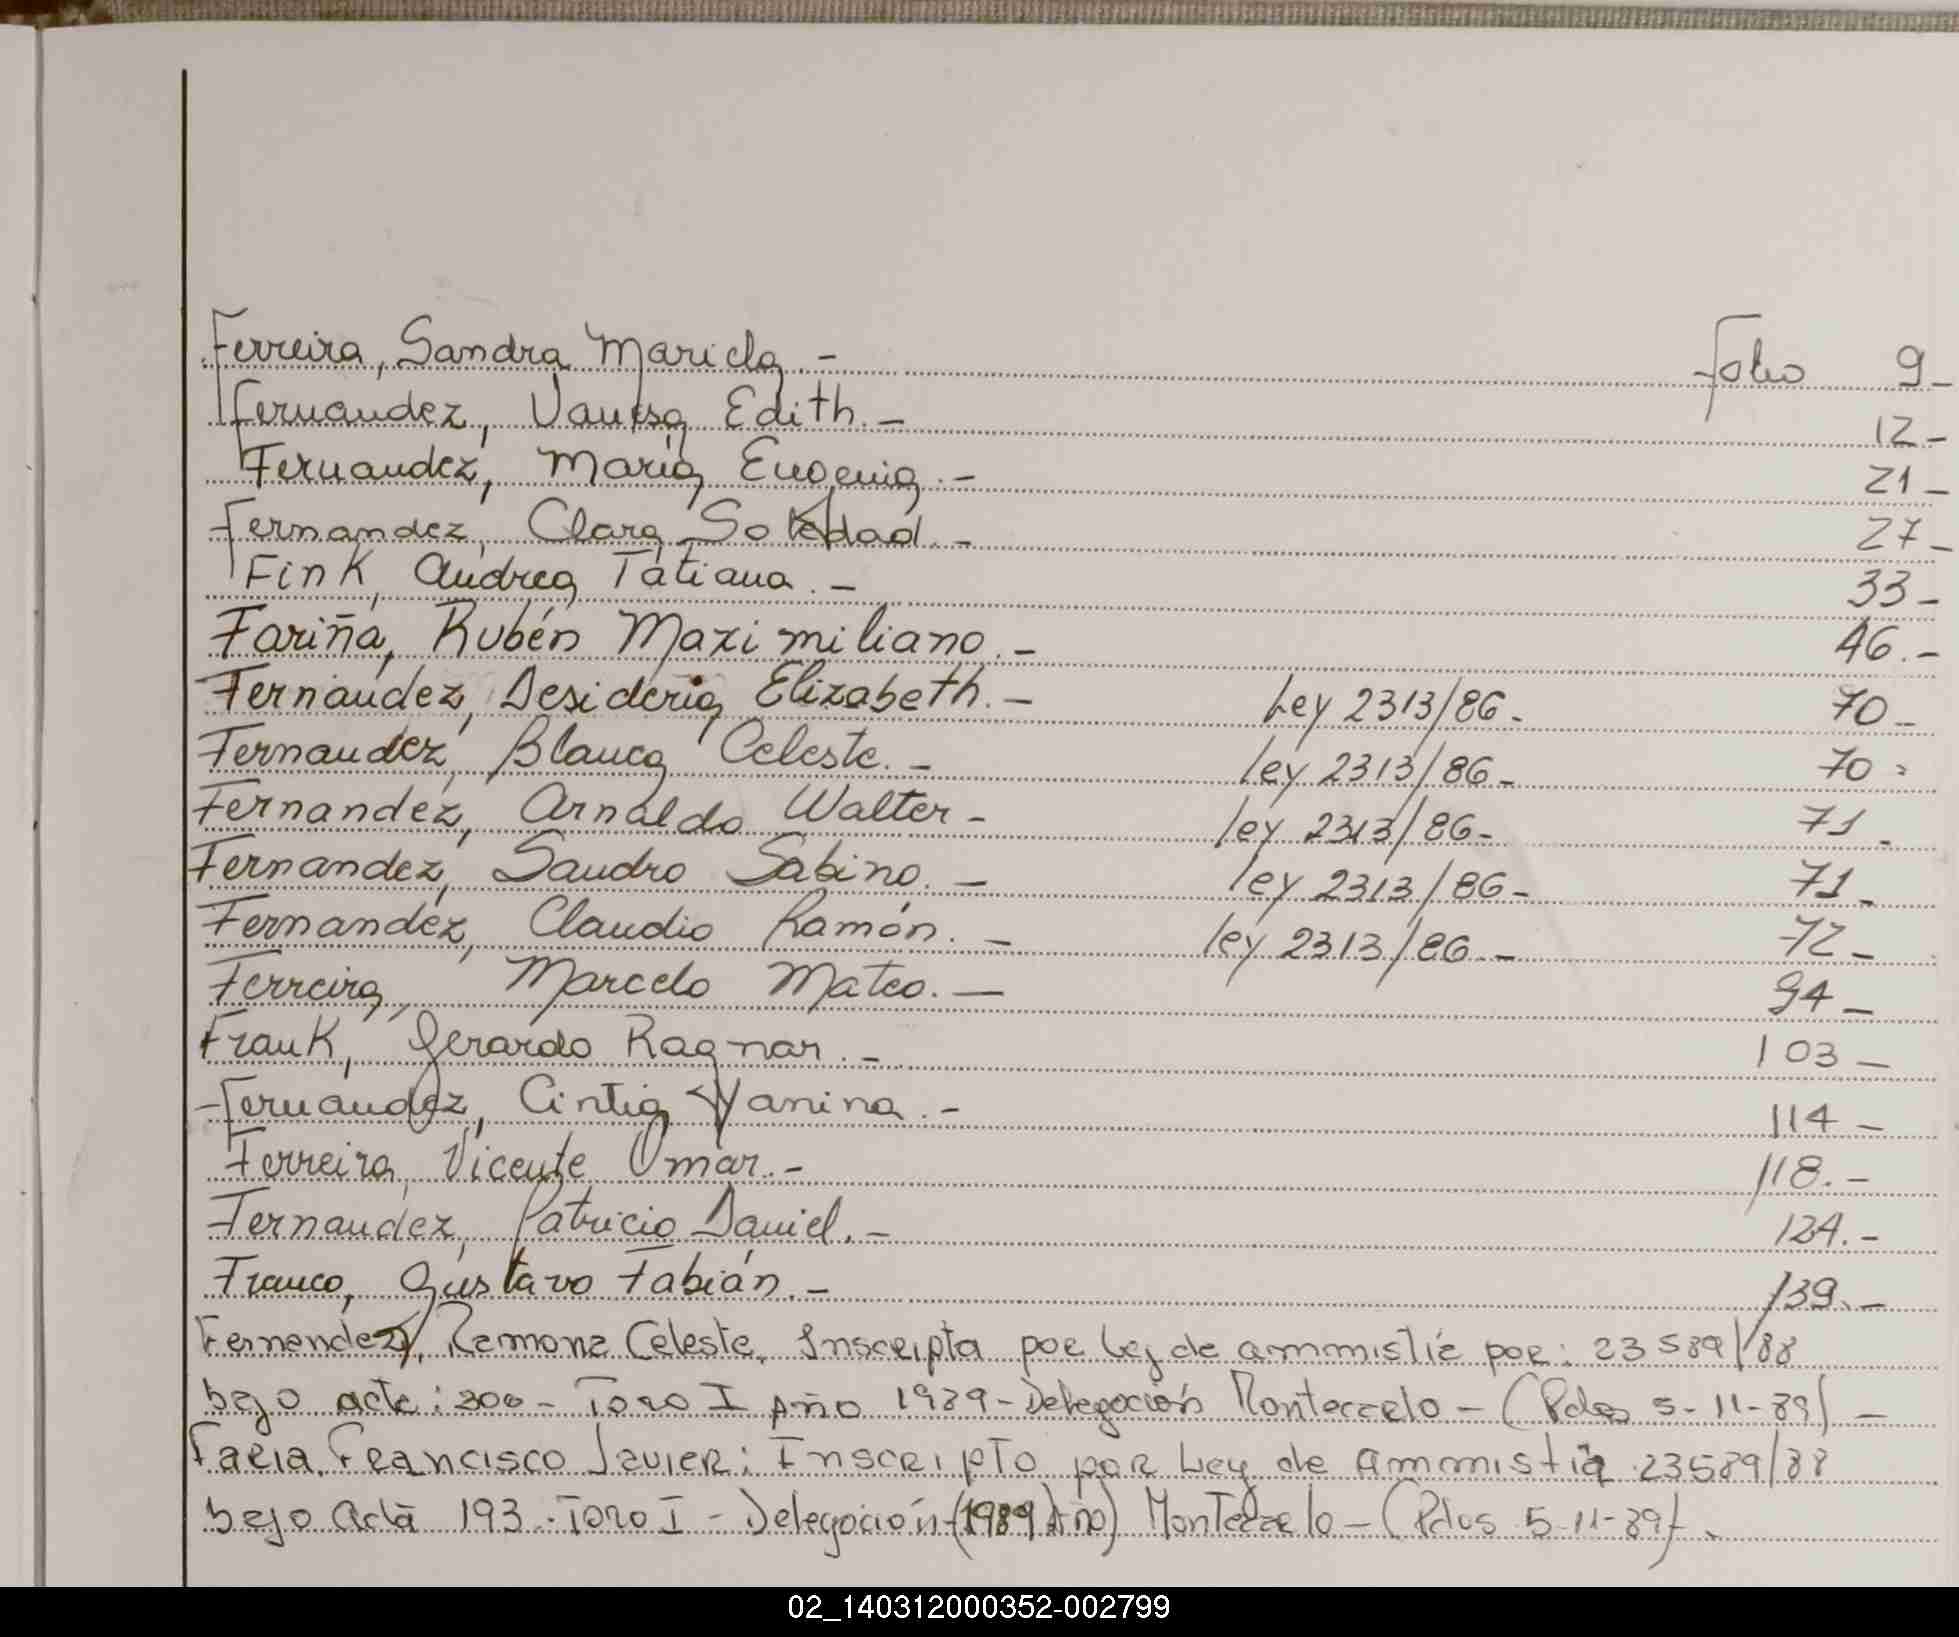 Ferreira, Sandra Mariela.- folio 9-
Fernandez, Vanesa Edith.- 12-
Fernandez, María Eugenia.- 21-
Fernandez, Clara Soledad.- 27-
Fink, Andrea Tatiana.- 33-
Fariña, Rubén Maximiliano.- 46.-
Fernández, Desideria Elizabeth.- Ley 2313/86- 70-
Fernandez, Blanca Celeste.- ley 2313/86- 70-
Fernandez, Arnaldo Walter- ley 2313/86- 71-
Fernandez, Sandro Sabino.- ley 2313/86- 71-
Fernandez, Claudio Ramón.- ley 2313/86- 72-
Ferreira, Marcelo Mateo.- 94-
Frank, Gerardo Ragnar.- 103-
Fernandez, Cintia Yanina.- 114-
Ferreira, Vicente Omar.- 118.-
Fernandez, Patricio Daniel.- 124.-
Franco, Gustavo Fabián.- 139.-
Fernendez, Ramona Celeste. Inscripta por Ley de ammistia por: 23589/88
bajo acta: 300- Tomo I Año 1989- Delegación Montecarlo - (Pdas 5-11-89) -
Faria, Francisco Javier: Inscripto por Ley de ammistia 23589/88
bajo Acta 193. Tomo I - Delegación-(1989 Año) Montecarlo - (Pdas 5-11-89)-.
02_140312000352-002799